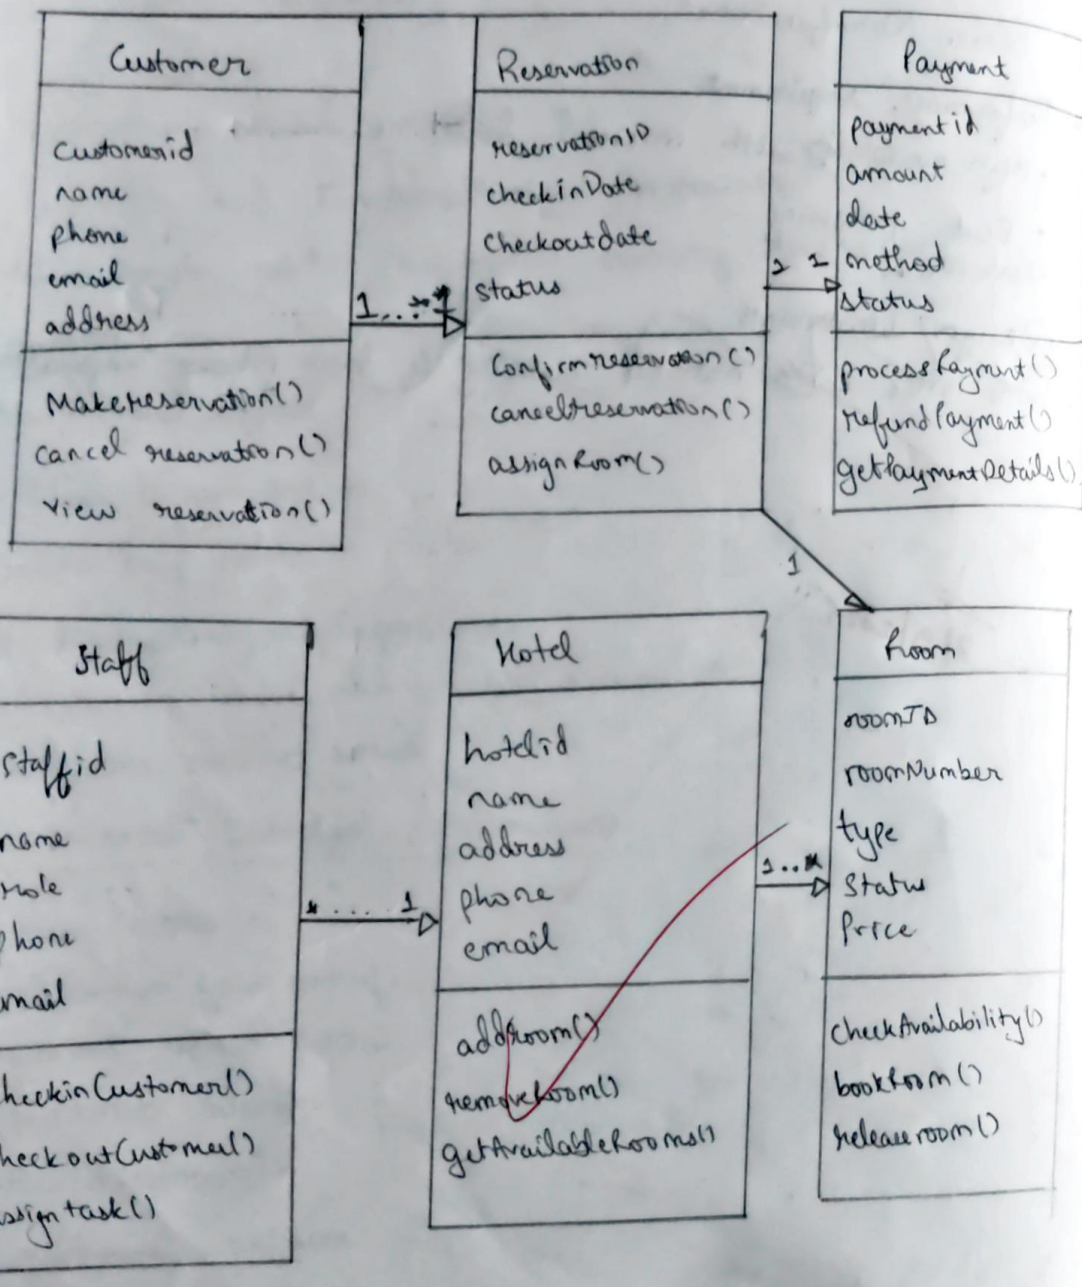 Customer
Customerid
name
phone
email
address
Makereservation()
cancel reservation()
view reservation()
1..**
Reservation
reservationID
checkinDate
Checkoutdate
status
Confirmreservation()
cancelreservation()
assignRoom()
1
Payment
paymentid
amount
date
method
status
processPayment()
refundPayment()
getPaymentDetails()
1
Staff
Staffid
name
role
phone
email
heckinCustomer()
heckoutCustomer()
ssigntask()
*....1
Hotel
hotelid
name
address
phone
email
addroom()
removeRoom()
getAvailableRooms()
1..*
Room
roomID
roomNumber
type
Status
Price
checkAvailability()
bookRoom()
releaseroom()